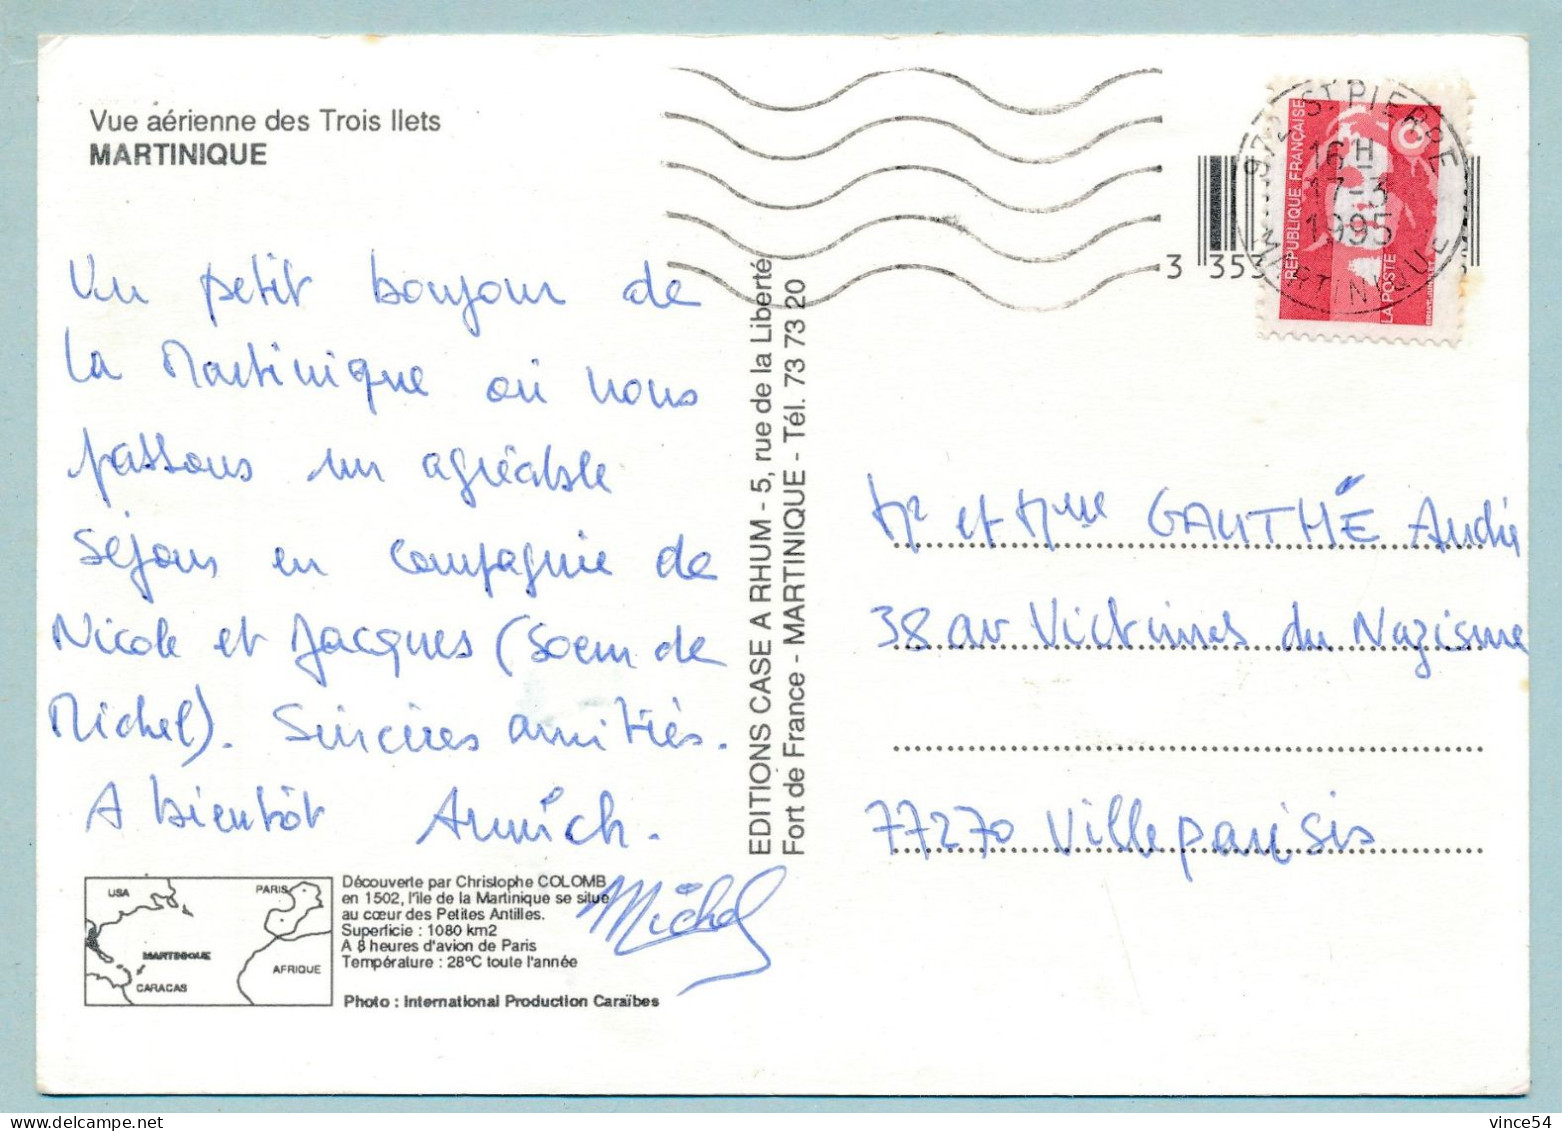 Vue aérienne des Trois Ilets
MARTINIQUE
Un petit bonjour de
la Martinique où nous
passons un agréable
séjour en compagnie de
Nicole et Jacques (soeur de
Michel). Sincères amitiés.
A bientôt Annick.
Michel
USA
PARIS
MARTINIQUE
AFRIQUE
CARACAS
Découverte par Christophe COLOMB
en 1502, l'île de la Martinique se situe
au cœur des Petites Antilles.
Superficie : 1080 km2
A 8 heures d'avion de Paris
Température : 28ºC toute l'année
Photo : International Production Caraïbes
EDITIONS CASE A RHUM - 5, rue de la Liberté
Fort de France - MARTINIQUE - Tél. 73 73 20
3 353
972 ST PIERRE
16H
17-3
1995
MARTINIQUE
RÉPUBLIQUE FRANÇAISE
LA POSTE
Mr et Mme GAUTHÉ André
38 av Victimes du Nazisme
77270 Villeparisis
vince54